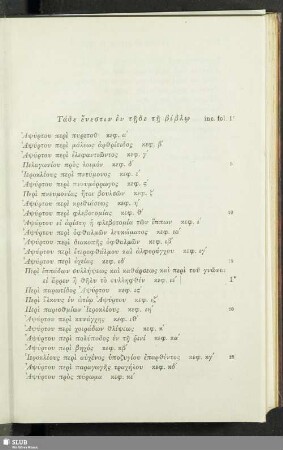 Τάδε ἔνεστιν ἐν τῇδε τῇ βίβλῳ inc. fol. 1ʳ
Ἀψύρτου περὶ πυρετοῦ κεφ. α΄
Ἀψύρτου περὶ μάλεως ἀρθρίτιδος κεφ. β΄
Ἀψύρτου περὶ ἐλεφαντιῶντος κεφ. γ΄
Πελαγωνίου πρὸς λοιμόν κεφ. δ΄ 5
Ἱεροκλέους περὶ πνεύμονος κεφ. ε΄
Ἀψύρτου περὶ πνευμόρρωγος κεφ. ς΄
Περὶ πνευμονίας ἤτοι βουλεῶν κεφ. ζ΄
Ἀψύρτου περὶ κριθιάσεως κεφ. η΄
Ἀψύρτου περὶ φλεβοτομίας κεφ. θ΄ 10
Ἀψύρτου εἰ ἀρίστη ἡ φλεβοτομία τῶν ἵππων κεφ. ι΄
Ἀψύρτου περὶ ὀφθαλμῶν λευκώματος κεφ. ια΄
Ἀψύρτου περὶ διακοπῆς ὀφθαλμῶν κεφ. ιβ΄
Ἀψύρτου περὶ ἑτεροφθάλμου καὶ ἀλφορύγχου κεφ. ιγ΄
Ἀψύρτου περὶ ὀχείας κεφ. ιδ΄ 15
Περὶ ἱππάδων συλλήψεως καὶ καθάρσεως καὶ περὶ τοῦ γνῶναι,
εἰ ἄρρεν ἢ θῆλυ τὸ συλληφθέν κεφ. ιε΄
Περὶ παρωτίδος Ἀψύρτου κεφ. ις΄
Περὶ ἕλκους ἐν Ἀψύρτου κεφ. ιζ΄
Περὶ παρισθμίων Ἱεροκλέους κεφ. ιη΄ 20
Ἀψύρτου περὶ κυνάγχης κεφ. ιθ΄
Ἀψύρτου περὶ χοιράδων θλίψεως κεφ. κ΄
Ἀψύρτου περὶ πολύποδος ἐν τῇ ῥινί κεφ. κα΄
Ἀψύρτου περὶ βηχός κεφ. κβ΄
Ἱεροκλέους περὶ αὐχένος ὑποζυγίου κεφ. κγ΄ 25
Ἀψύρτου περὶ παραγωγῆς τραχήλου κεφ. κδ΄
Ἀψύρτου πρὸς πύρωμα κεφ. κε΄
SLUB